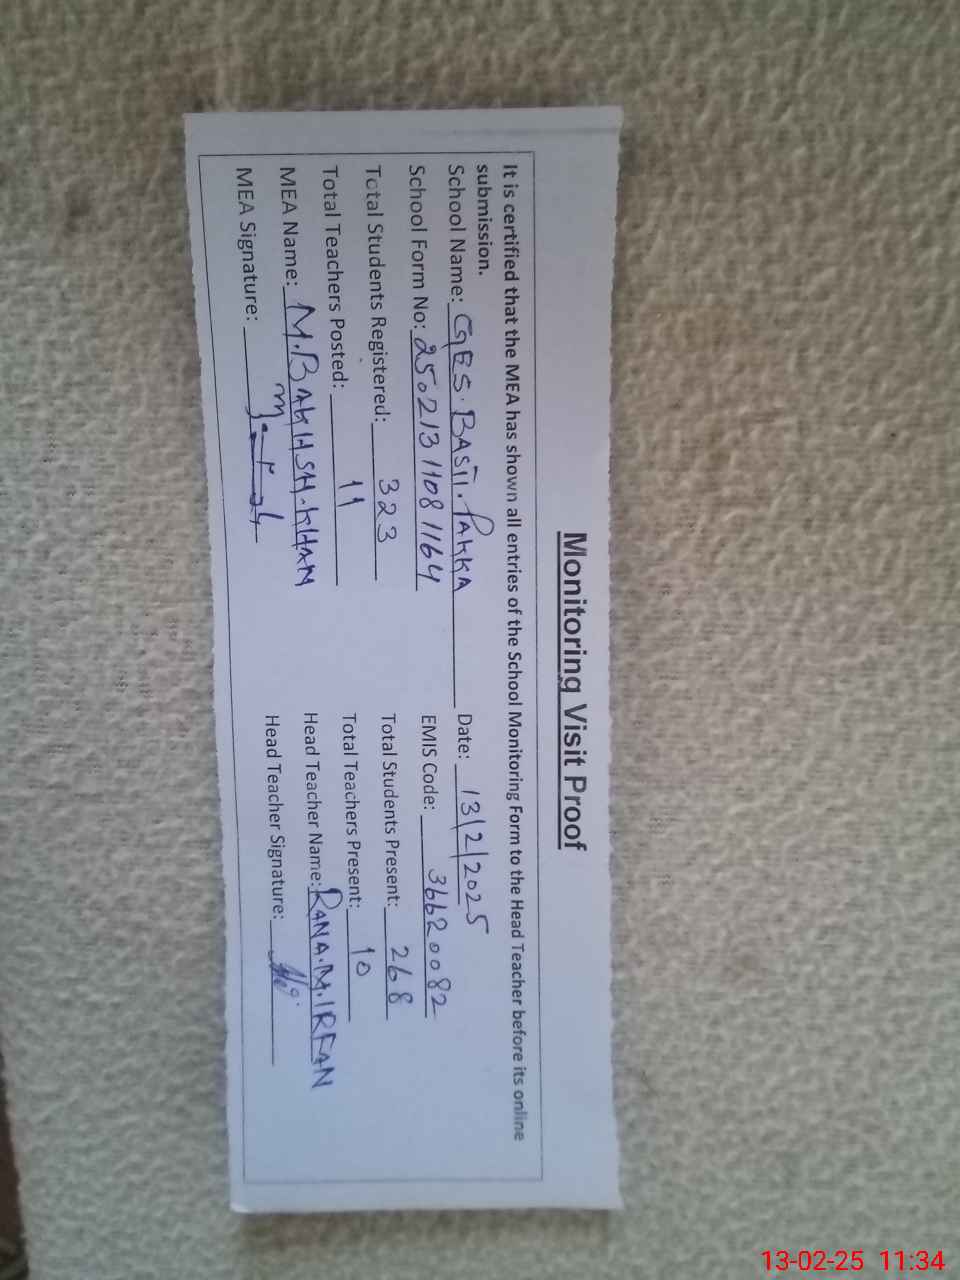 Monitoring Visit Proof
It is certified that the MEA has shown all entries of the School Monitoring Form to the Head Teacher before its online
submission.
School Name: GES. BASTI. PAKKA Date: 13/2/2025
School Form No: 25021311081164 EMIS Code: 36620082
Total Students Registered: 323 Total Students Present: 268
Total Teachers Posted: 11 Total Teachers Present: 10
MEA Name: M. BAKHSH. KHAN Head Teacher Name: RANA. M. IRFAN
MEA Signature: Head Teacher Signature:
13-02-25 11:34